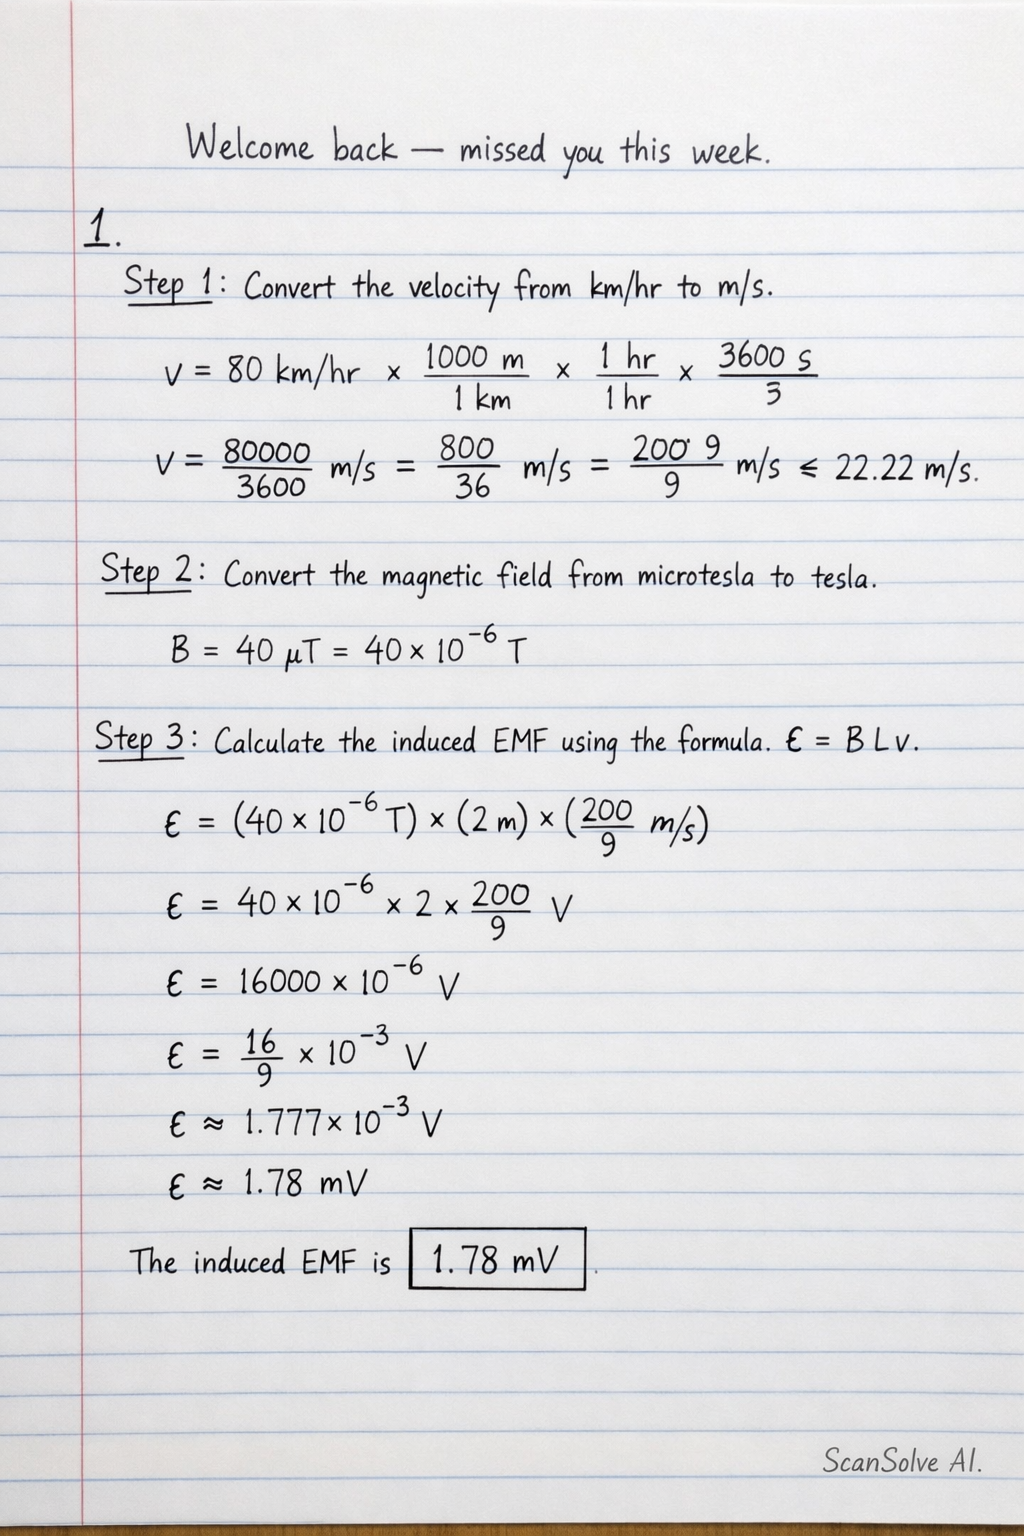 Welcome back — missed you this week.
1.
Step 1: Convert the velocity from km/hr to m/s.
v = 80 km/hr × 1000 m / 1 km × 1 hr / 1 hr × 3600 s / 3
v = 80000 / 3600 m/s = 800 / 36 m/s = 200 9 / 9 m/s ⩽ 22.22 m/s.
Step 2: Convert the magnetic field from microtesla to tesla.
B = 40 μT = 40 × 10⁻⁶ T
Step 3: Calculate the induced EMF using the formula. Ɛ = B L v.
Ɛ = (40 × 10⁻⁶ T) × (2 m) × (200 / 9 m/s)
Ɛ = 40 × 10⁻⁶ × 2 × 200 / 9 V
Ɛ = 16000 × 10⁻⁶ V
Ɛ = 16 / 9 × 10⁻³ V
Ɛ ≈ 1.777 × 10⁻³ V
Ɛ ≈ 1.78 mV
The induced EMF is 1.78 mV.
ScanSolve AI.